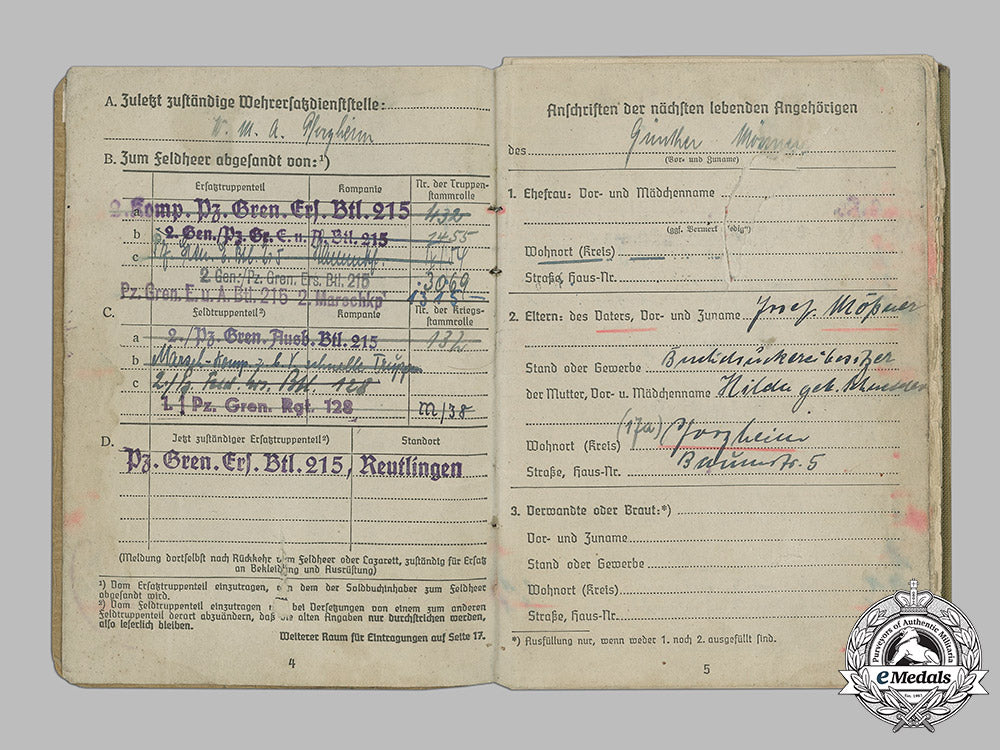 A. Zuletzt zuständige Wehrersatzdienststelle:
W. M. A. Pforzheim
B. Zum Feldheer abgesandt von:¹)
Ersatztruppenteil Kompanie Nr. der Truppenstammrolle
a 2. Komp. Pz. Gren. Ers. Btl. 215 432
b 2. Gen./Pz. Gr. E. u. A. Btl. 215 1455
c
2. Gen./Pz. Gren. Ers. Btl. 215 3069
Pz. Gren. E. u. A. Btl. 215 2. Marschkp 1315
C. Feldtruppenteil²) Kompanie Nr. der Kriegsstammrolle
a 2./Pz. Gren. Ausb. Btl. 215
b Marsch-Komp. z. b. V. schnelle Truppen
c Btl. 128
Pz. Gren. Rgt. 128 m/38
D. Jetzt zuständiger Ersatztruppenteil²) Standort
Pz. Gren. Ers. Btl. 215, Reutlingen
(Meldung dortselbst nach Rückkehr vom Feldheer oder Lazarett, zuständig für Ersatz
an Bekleidung und Ausrüstung)
¹) Vom Ersatztruppenteil einzutragen, von dem der Soldbuchinhaber zum Feldheer
abgesandt wird.
²) Vom Feldtruppenteil einzutragen bei Versetzungen von einem zum anderen
Feldtruppenteil derart abzuändern, daß die alten Angaben nur durchstrichen werden,
also leserlich bleiben.
Weiterer Raum für Eintragungen auf Seite 17.
4
Anschriften der nächsten lebenden Angehörigen
des Günther Mößner
(Vor- und Zuname)
1. Ehefrau: Vor- und Mädchenname
(ggf. Vermerk "ledig")
Wohnort (Kreis)
Straße, Haus-Nr.
2. Eltern: des Vaters, Vor- und Zuname Josef Mößner
Stand oder Gewerbe Buchdruckereibesitzer
der Mutter, Vor- u. Mädchenname Hilda geb.
Wohnort (Kreis) (17a) Pforzheim
Straße, Haus-Nr. Baumstr. 5
3. Verwandte oder Braut:*)
Vor- und Zuname
Stand oder Gewerbe
Wohnort (Kreis)
Straße, Haus-Nr.
*) Ausfüllung nur, wenn weder 1. noch 2. ausgefüllt sind.
5
Purveyors of Authentic Militaria
eMedals